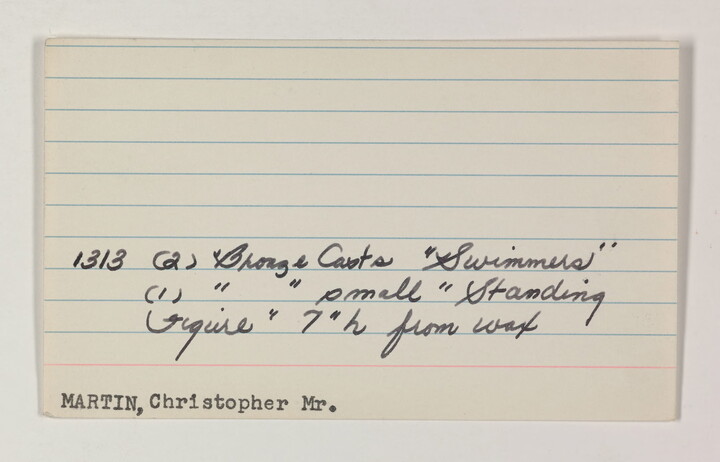 1313 (2) Bronze Casts "Swimmers"
(1) " " small "Standing
Figure" 7"h from wax
MARTIN, Christopher Mr.